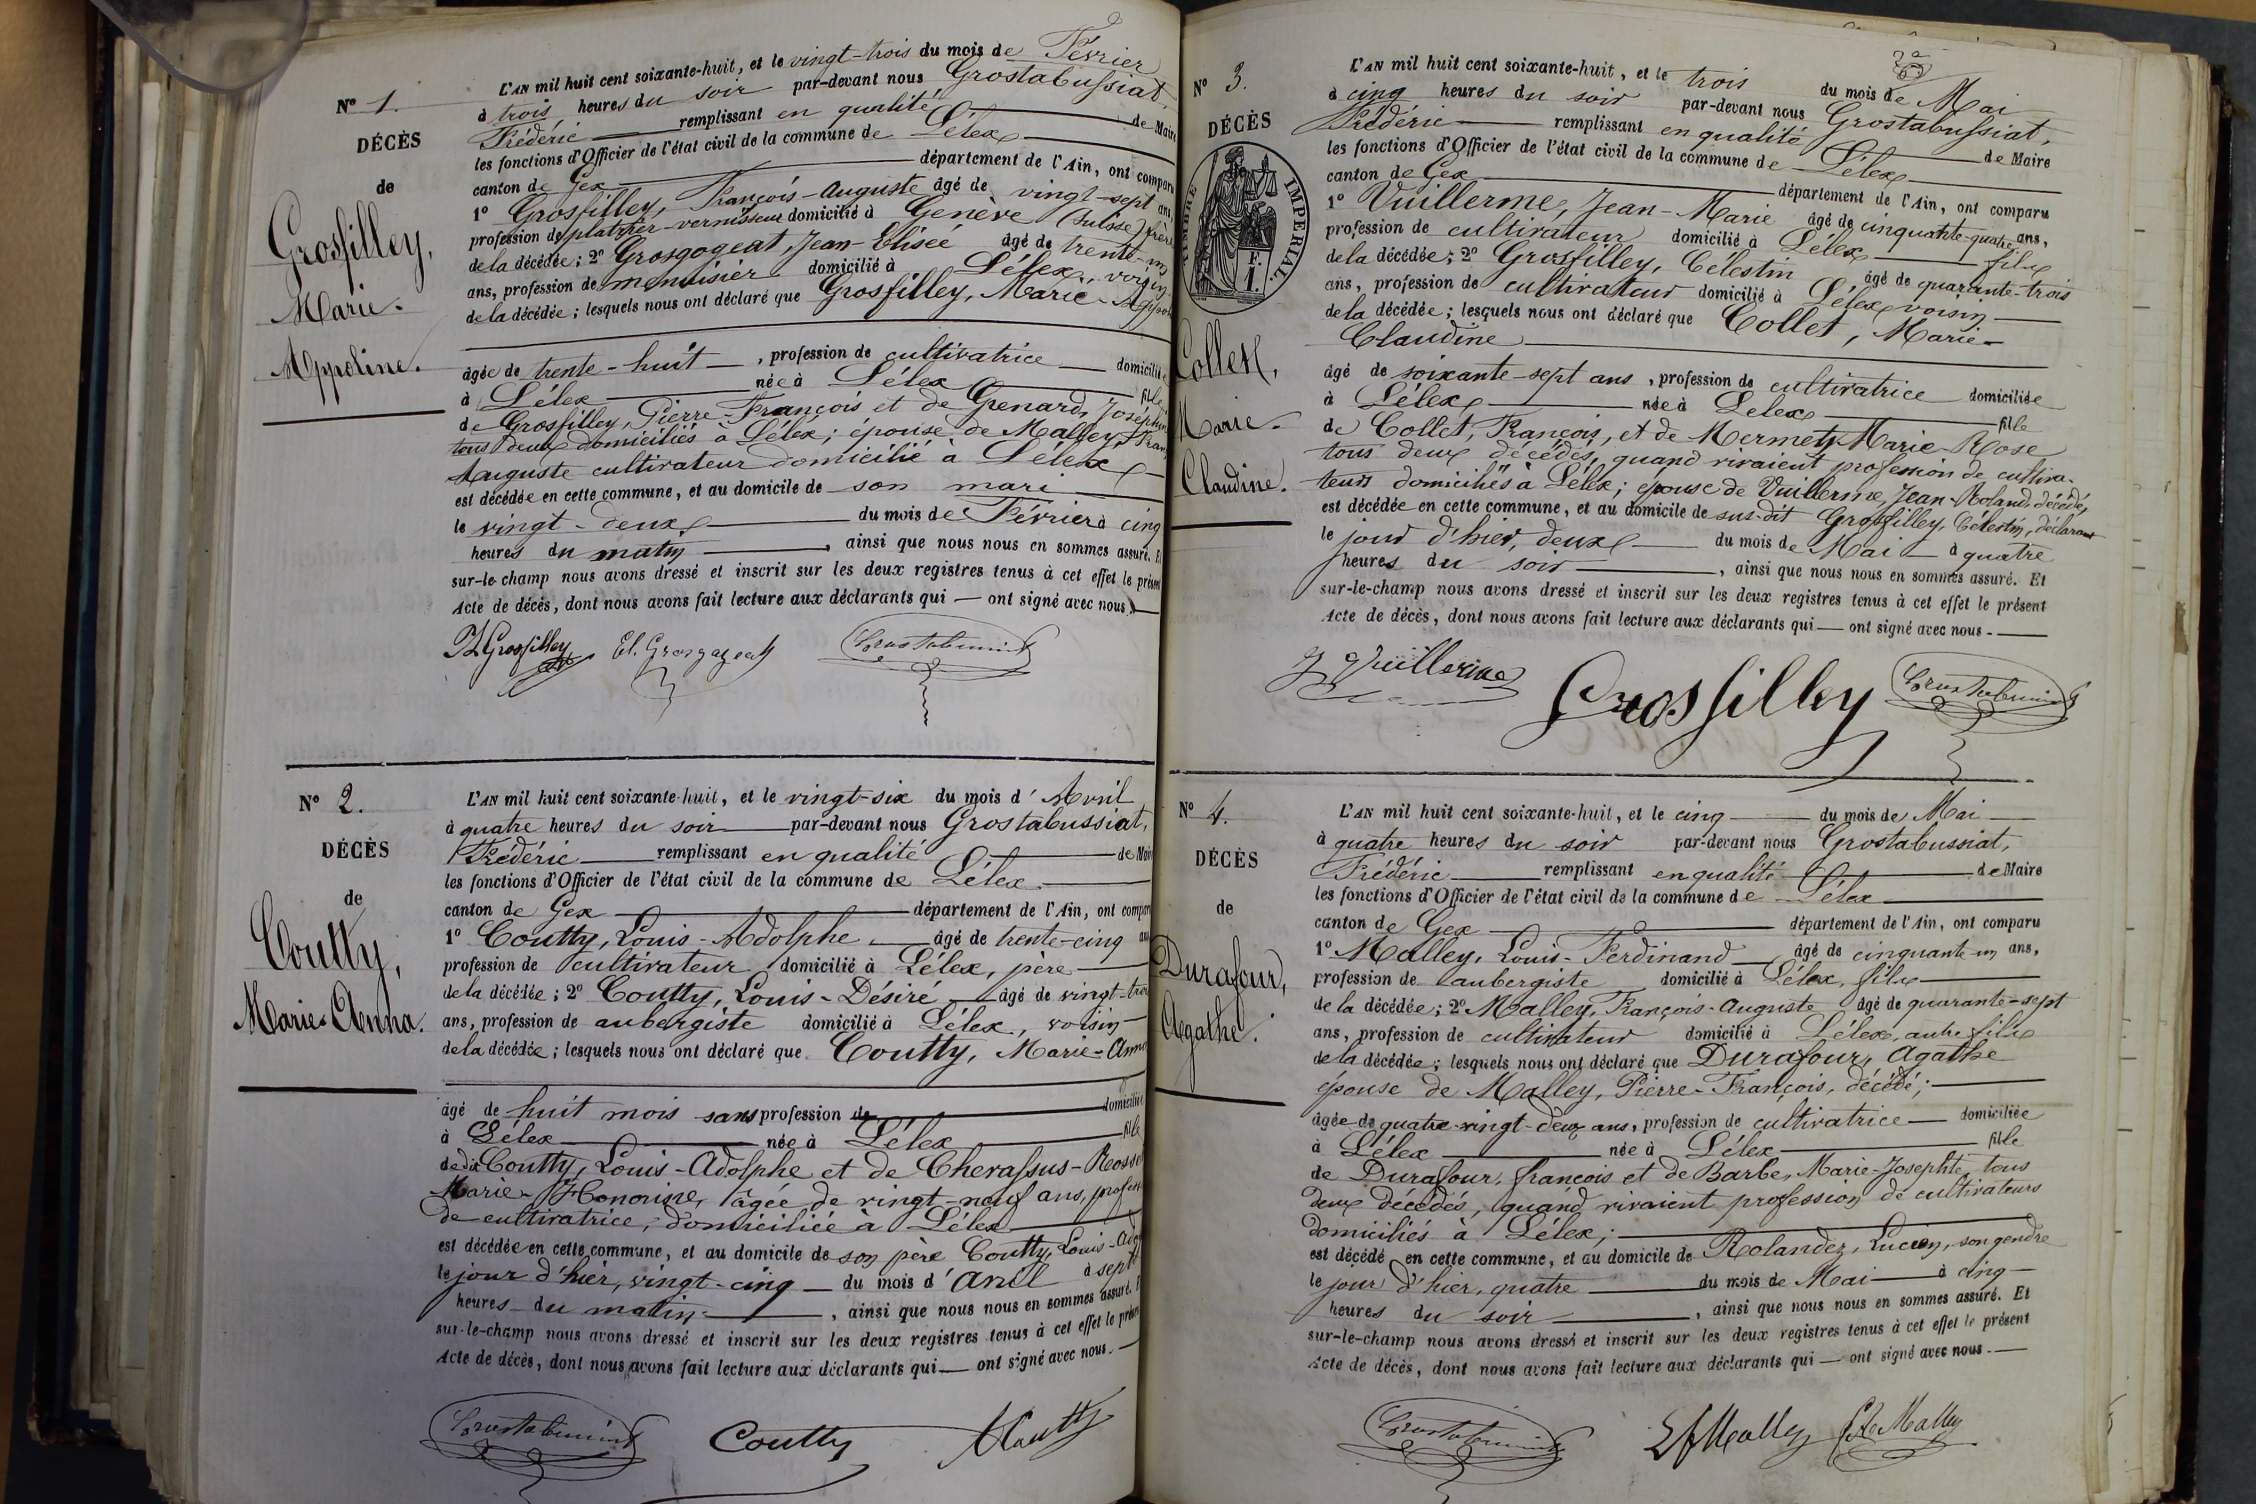 N° 1.
DÉCÈS
de
Grosfilley,
Marie-
Appoline.
L'AN mil huit cent soixante-huit, et le vingt-trois du mois de Février
à trois heures du soir par-devant nous Grostabussiat,
Frédéric remplissant en qualité de Maire
les fonctions d'Officier de l'état civil de la commune de Lélex
canton de Gex département de l'Ain, ont comparu
1° Grosfilley, François-Auguste âgé de vingt-sept ans,
profession de platrier-vernisseur domicilié à Genève (Suisse) frère
de la décédée; 2° Grosgogeat, Jean-Elisée âgé de trente-un
ans, profession de menuisier domicilié à Lélex, voisin
de la décédée; lesquels nous ont déclaré que Grosfilley, Marie-Appo
âgée de trente-huit , profession de cultivatrice domiciliée
à Lélex née à Lélex fille
de Grosfilley, Pierre-François et de Grenard, Joséphin
tous deux domiciliés à Lélex; épouse de Malley, Fran
Auguste cultivateur domicilié à Lélex
est décédée en cette commune, et au domicile de son mari
le vingt-deux du mois de Février à cinq
heures du matin , ainsi que nous nous en sommes assuré. Et
sur-le-champ nous avons dressé et inscrit sur les deux registres tenus à cet effet le présent
Acte de décès, dont nous avons fait lecture aux déclarants qui — ont signé avec nous.
Grosfilley El. Grosgogeat Grostabussiat
N° 2.
DÉCÈS
de
Coutty,
Marie-Anna.
L'AN mil huit cent soixante-huit, et le vingt-six du mois d'Avril
à quatre heures du soir par-devant nous Grostabussiat,
Frédéric remplissant en qualité de Mair
les fonctions d'Officier de l'état civil de la commune de Lélex
canton de Gex département de l'Ain, ont compar
1° Coutty, Louis-Adolphe âgé de trente-cinq ans
profession de cultivateur domicilié à Lélex, père
de la décédée; 2° Coutty, Louis-Désiré âgé de vingt-troi
ans, profession de aubergiste domicilié à Lélex, voisin
de la décédée; lesquels nous ont déclaré que Coutty, Marie-Anna
âgé de huit mois sans profession de domiciliée
à Lélex née à Lélex fille
de dit Coutty, Louis-Adolphe et de Cherassus-Rosse
Marie-Honorine, âgée de vingt-neuf ans, profess
de cultivatrice, domiciliée à Lélex
est décédée en cette commune, et au domicile de son père Coutty, Louis-Ado
le jour d'hier, vingt-cinq du mois d'Avril à sept
heures du matin , ainsi que nous nous en sommes assuré. E
sur-le-champ nous avons dressé et inscrit sur les deux registres tenus à cet effet le présen
Acte de décès, dont nous avons fait lecture aux déclarants qui — ont signé avec nous.
Grostabussiat Coutty Coutty
N° 3.
DÉCÈS
TIMBRE IMPÉRIAL.
F.
1.
Collet,
Marie-
Claudine.
L'AN mil huit cent soixante-huit, et le trois du mois de Mai
à cinq heures du soir par-devant nous Grostabussiat,
Frédéric remplissant en qualité de Maire
les fonctions d'Officier de l'état civil de la commune de Lélex
canton de Gex département de l'Ain, ont comparu
1° Vuillerme, Jean-Marie âgé de cinquante-quatre ans,
profession de cultivateur domicilié à Lélex fils
de la décédée; 2° Grosfilley, Célestin âgé de quarante-trois
ans, profession de cultivateur domicilié à Lélex voisin
de la décédée; lesquels nous ont déclaré que Collet, Marie-
Claudine
âgé de soixante-sept ans, profession de cultivatrice domiciliée
à Lélex née à Lélex fille
de Collet, François, et de Mermet, Marie-Rose
tous deux décédés, quand vivaient profession de cultiva-
teurs domiciliés à Lélex; épouse de Vuillerme, Jean-Roland, décédé,
est décédée en cette commune, et au domicile de sus-dit Grosfilley, Célestin, déclarant
le jour d'hier, deux du mois de Mai à quatre
heures du soir , ainsi que nous nous en sommes assuré. Et
sur-le-champ nous avons dressé et inscrit sur les deux registres tenus à cet effet le présent
Acte de décès, dont nous avons fait lecture aux déclarants qui — ont signé avec nous.
J Vuillerme Grosfilley Grostabussiat
N° 4.
DÉCÈS
de
Durafour,
Agathe.
L'AN mil huit cent soixante-huit, et le cinq du mois de Mai
à quatre heures du soir par-devant nous Grostabussiat,
Frédéric remplissant en qualité de Maire
les fonctions d'Officier de l'état civil de la commune de Lélex
canton de Gex département de l'Ain, ont comparu
1° Malley, Louis-Ferdinand âgé de cinquante-un ans,
profession de aubergiste domicilié à Lélex, fils
de la décédée; 2° Malley, François-Auguste âgé de quarante-sept
ans, profession de cultivateur domicilié à Lélex, autre fils
de la décédée; lesquels nous ont déclaré que Durafour, Agathe
épouse de Malley, Pierre-François, décédé;
âgée de quatre-vingt-deux ans, profession de cultivatrice domiciliée
à Lélex née à Lélex fille
de Durafour, françois et de Barbe, Marie-Josephte, tous
deux décédés, quand vivaient profession de cultivateurs
domiciliés à Lélex;
est décédé en cette commune, et au domicile de Rolandez, Lucien, son gendre
le jour d'hier, quatre du mois de Mai à cinq
heures du soir , ainsi que nous nous en sommes assuré. Et
sur-le-champ nous avons dressé et inscrit sur les deux registres tenus à cet effet le présent
Acte de décès, dont nous avons fait lecture aux déclarants qui — ont signé avec nous.
Grostabussiat Malley Malley